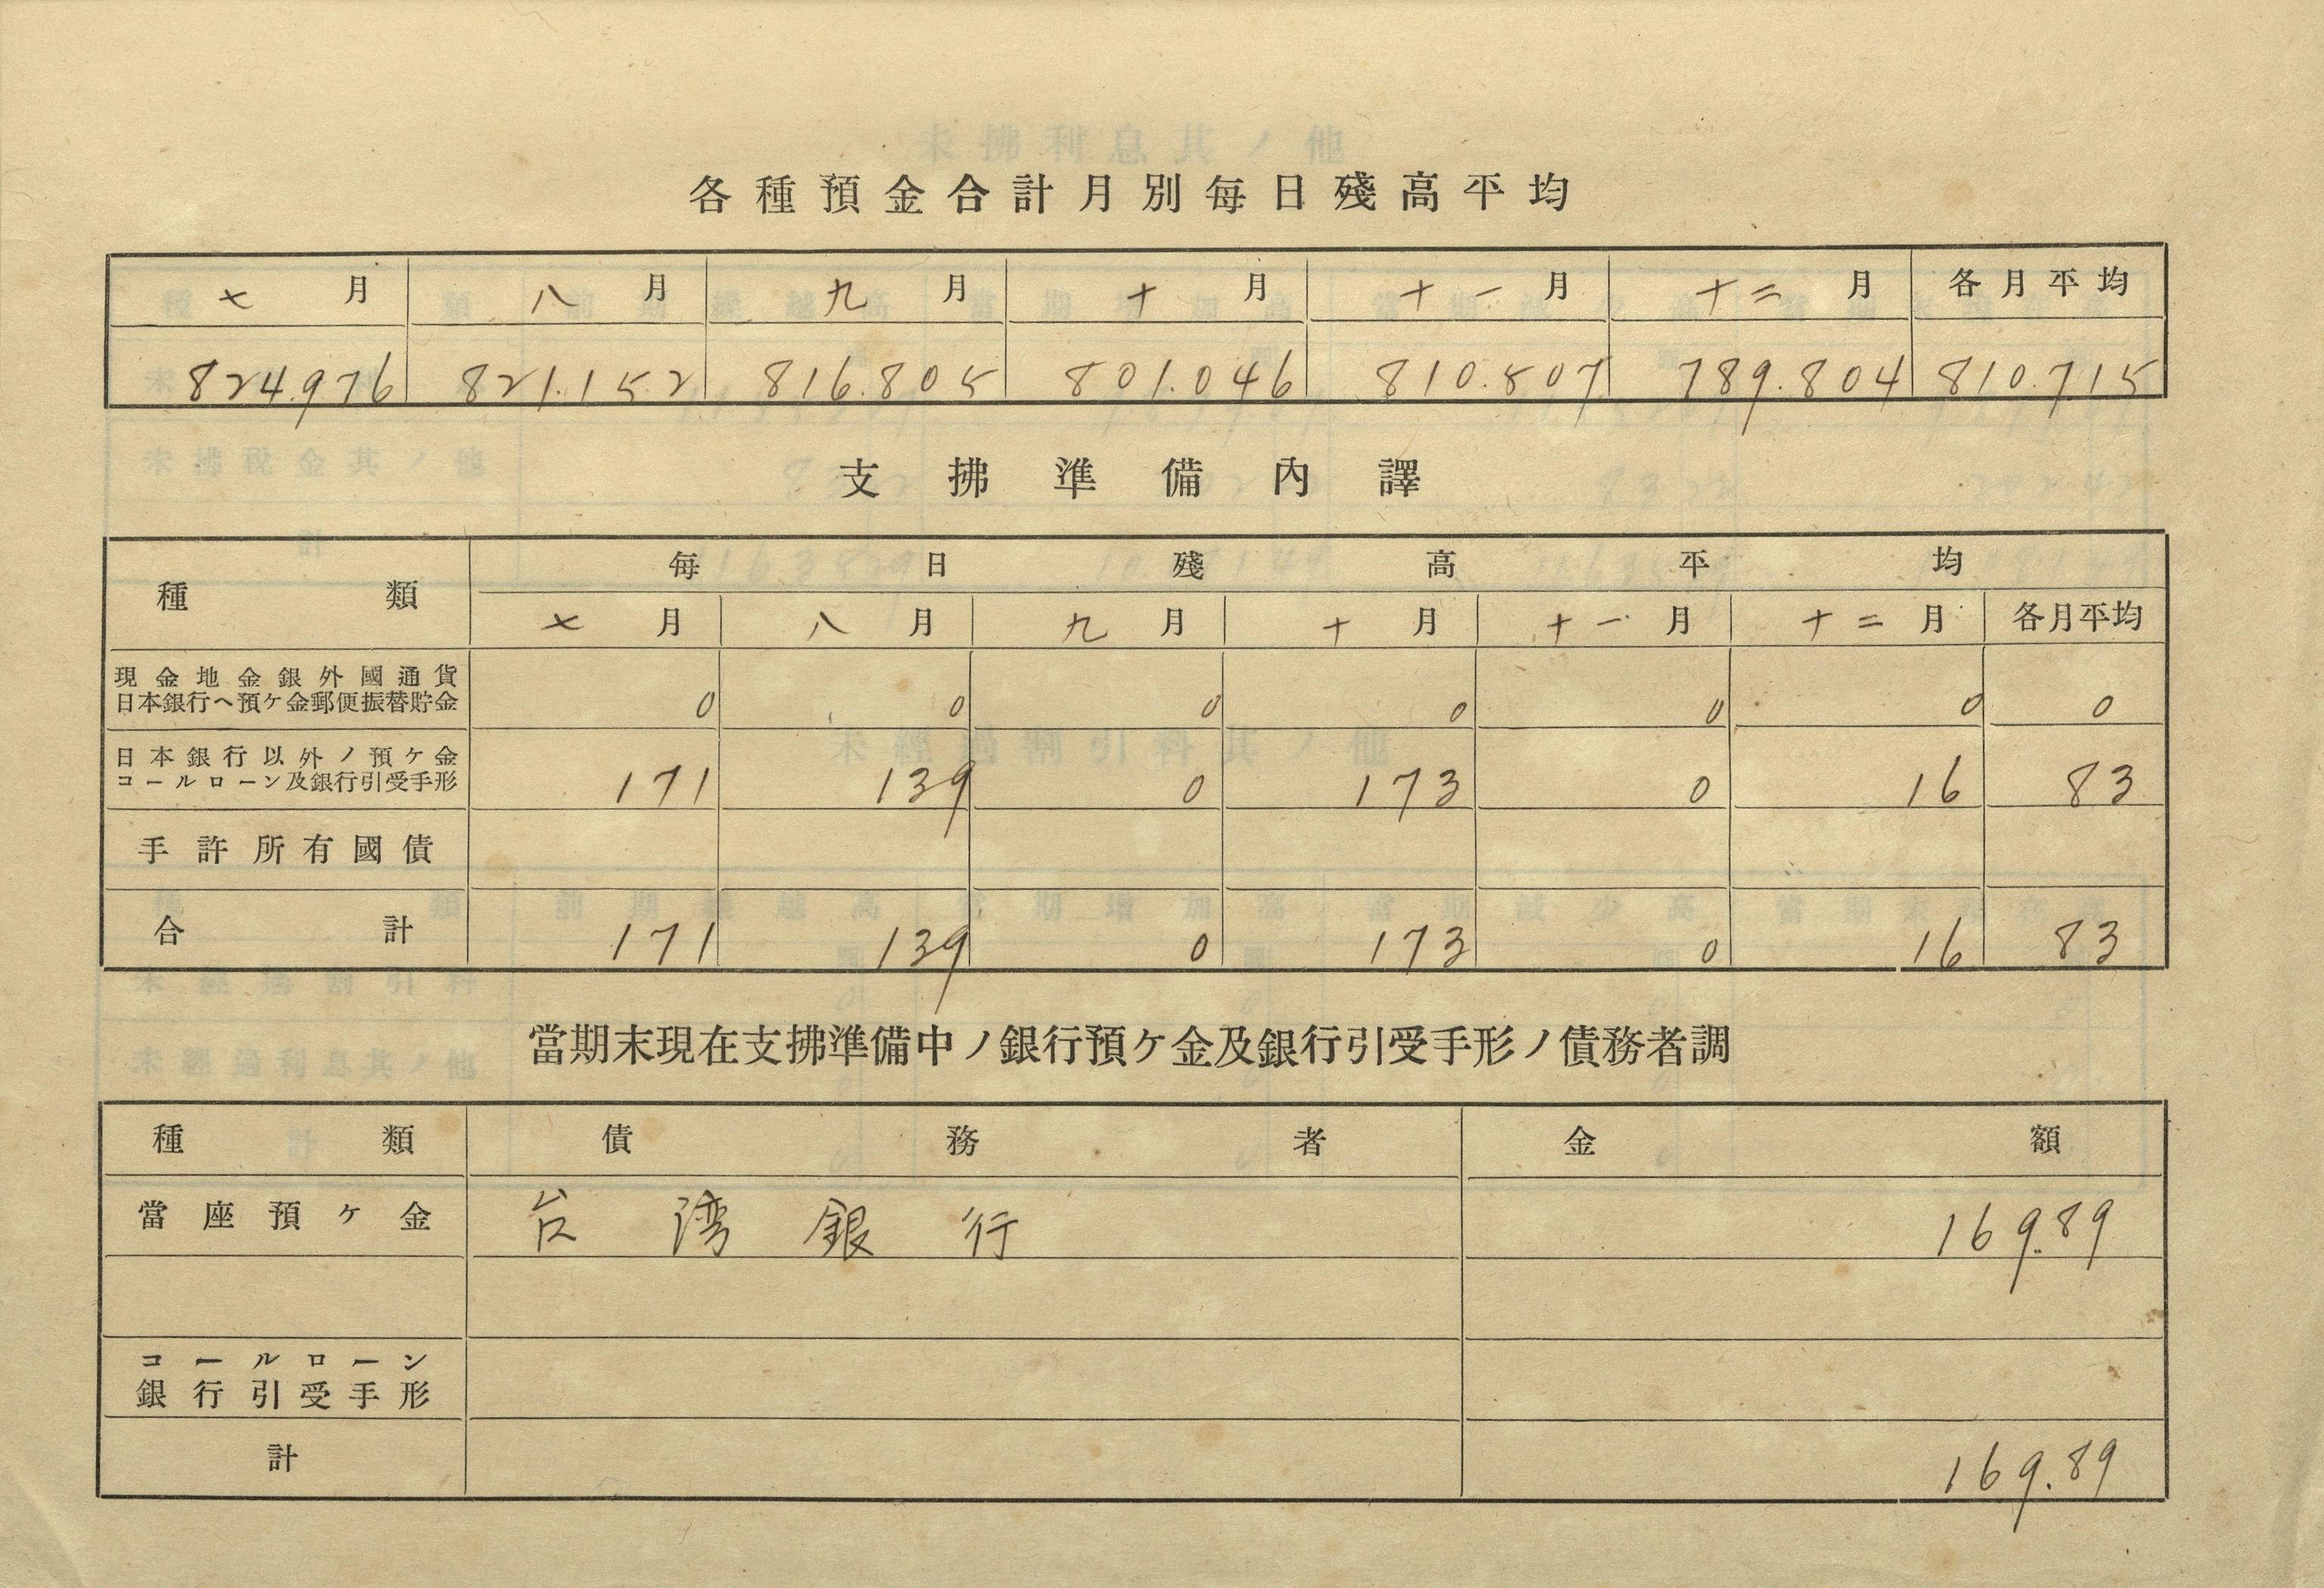 各種預金合計月別每日殘高平均
七月 八月 九月 十月 十一月 十二月 各月平均
824.976 821.152 816.805 801.046 810.507 789.804 810.715
支拂準備內譯
種類 每日殘高平均
七月 八月 九月 十月 十一月 十二月 各月平均
現金地金銀外國通貨
日本銀行へ預ケ金郵便振替貯金 0 0 0 0 0 0 0
日本銀行以外ノ預ケ金
コールローン及銀行引受手形 171 139 0 173 0 16 83
手許所有國債
合計 171 139 0 173 0 16 83
當期末現在支拂準備中ノ銀行預ケ金及銀行引受手形ノ債務者調
種類 債務者 金額
當座預ケ金 台湾銀行 169.89
コールローン
銀行引受手形
計 169.89